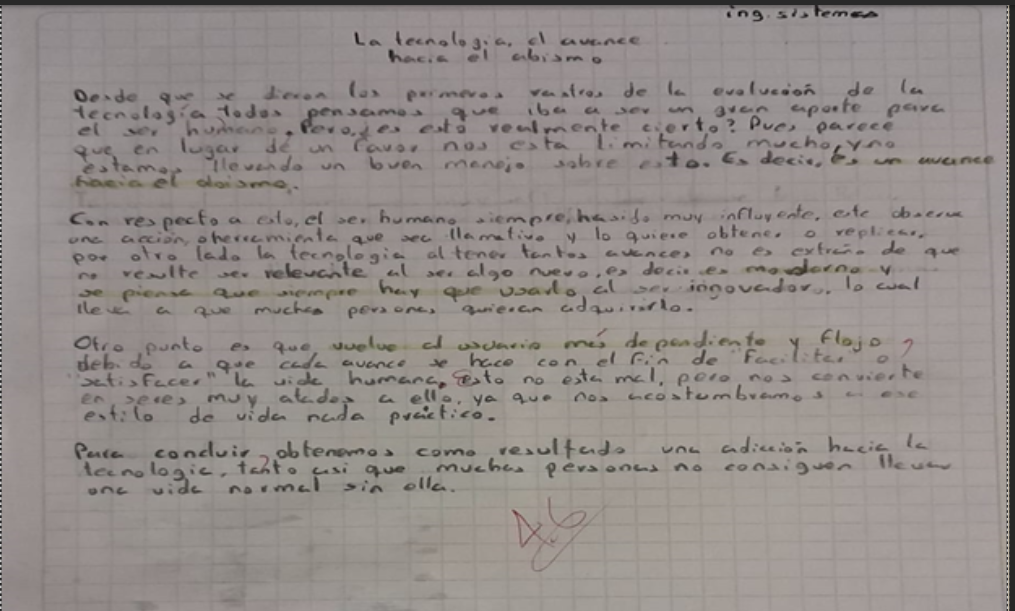 ing. sistemas
La tecnología, el avance
hacia el abismo
Desde que se dieron los primeros rastros de la evolución de la
tecnología todos pensamos que iba a ser un gran aporte para
el ser humano. Pero, ¿es esto realmente cierto? Pues parece
que en lugar de un favor nos esta limitando mucho, y no
estamos llevando un buen manejo sobre esto. Es decir, es un avance
hacia el
Con respecto a esto, el ser humano siempre ha sido muy influyente, este observa
una acción, o herramienta que sea llamativo y lo quiere obtener o replicar,
por otro lado la tecnologia al tener tantos avances no es extraño de que
no resulte ser relevante al ser algo nuevo, es decir, es moderno y
se piensa que siempre hay que usarlo al ser innovador, lo cual
lleva a que muchas personas quieran adquirirlo.
Otro punto es que vuelve al usuario más dependiente y flojo,
debido a que cada avance se hace con el fin de "facilitar" o
"satisfacer" la vida humana, esto no esta mal, pero nos convierte
en seres muy atados a ello, ya que nos acostumbramos a ese
estilo de vida nada práctico.
Para concluir, obtenemos como resultado una adicción hacia la
tecnologia, tanto asi que muchas personas no consiguen llevar
una vida normal sin ella.
4.6